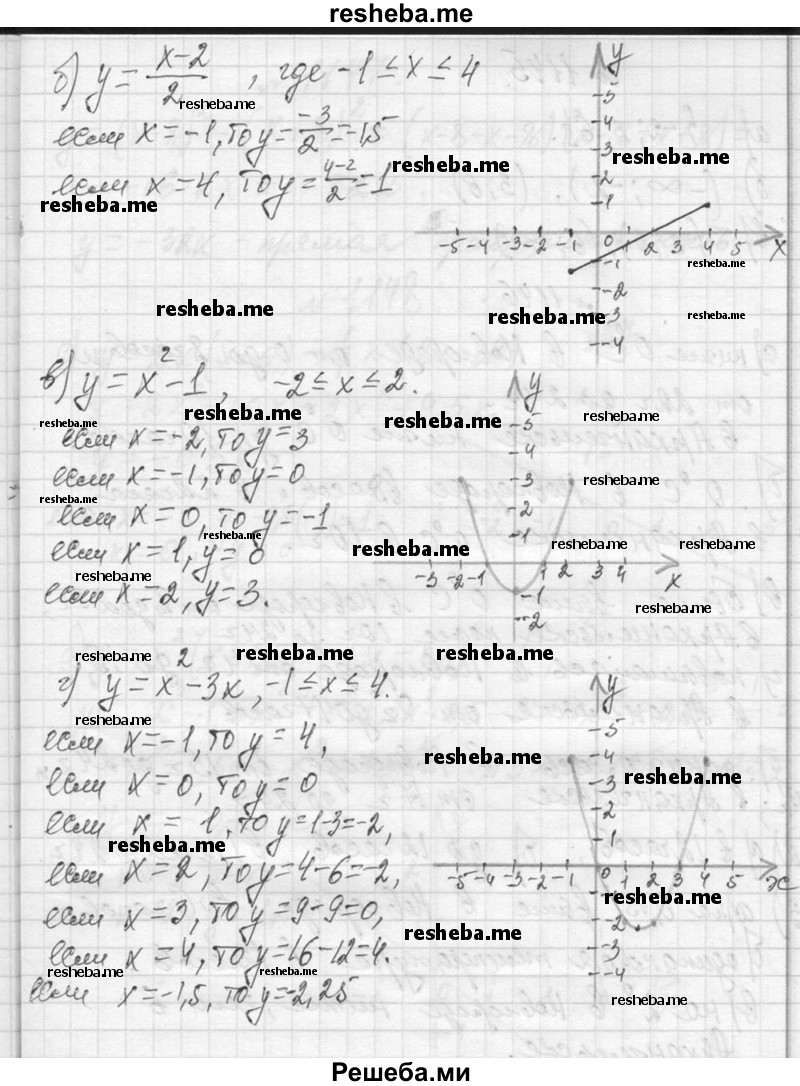 resheba.me
б) y = (x-2)/2 , где -1 ≤ x ≤ 4
resheba.me
если x = -1, то y = -3/2 = -1,5
resheba.me
если x = 4, то y = (4-2)/2 = 1
resheba.me
y
-5
-4
3
-2
-1
-5 -4 -3 -2 -1 0 1 2 3 4 5 x
-1
-2
-3
-4
resheba.me
resheba.me
resheba.me
resheba.me
в) y = x² - 1, -2 ≤ x ≤ 2.
resheba.me
resheba.me
если x = -2, то y = 3
если x = -1, то y = 0
resheba.me
если x = 0, то y = -1
resheba.me
если x = 1, y = 0
resheba.me
если x = 2, y = 3.
y
-5
-4
-3
-2
-1
-3 -2 -1 1 2 3 4 x
-1
-2
resheba.me
resheba.me
resheba.me
resheba.me
resheba.me
resheba.me
resheba.me
resheba.me
resheba.me resheba.me resheba.me
г) y = x² - 3x, -1 ≤ x ≤ 4.
resheba.me
если x = -1, то y = 4,
если x = 0, то y = 0
если x = 1, то y = 1-3 = -2,
resheba.me
если x = 2, то y = 4-6 = -2,
если x = 3, то y = 9-9 = 0,
если x = 4, то y = 16-12 = 4.
resheba.me resheba.me
если x = -1,5, то y = -2,25
y
-5
-4
-3
-2
-1
-5 -4 -3 -2 -1 0 1 2 3 4 5 x
-2
-3
-4
resheba.me
resheba.me
resheba.me
resheba.me
resheba.me
Решеба.ми